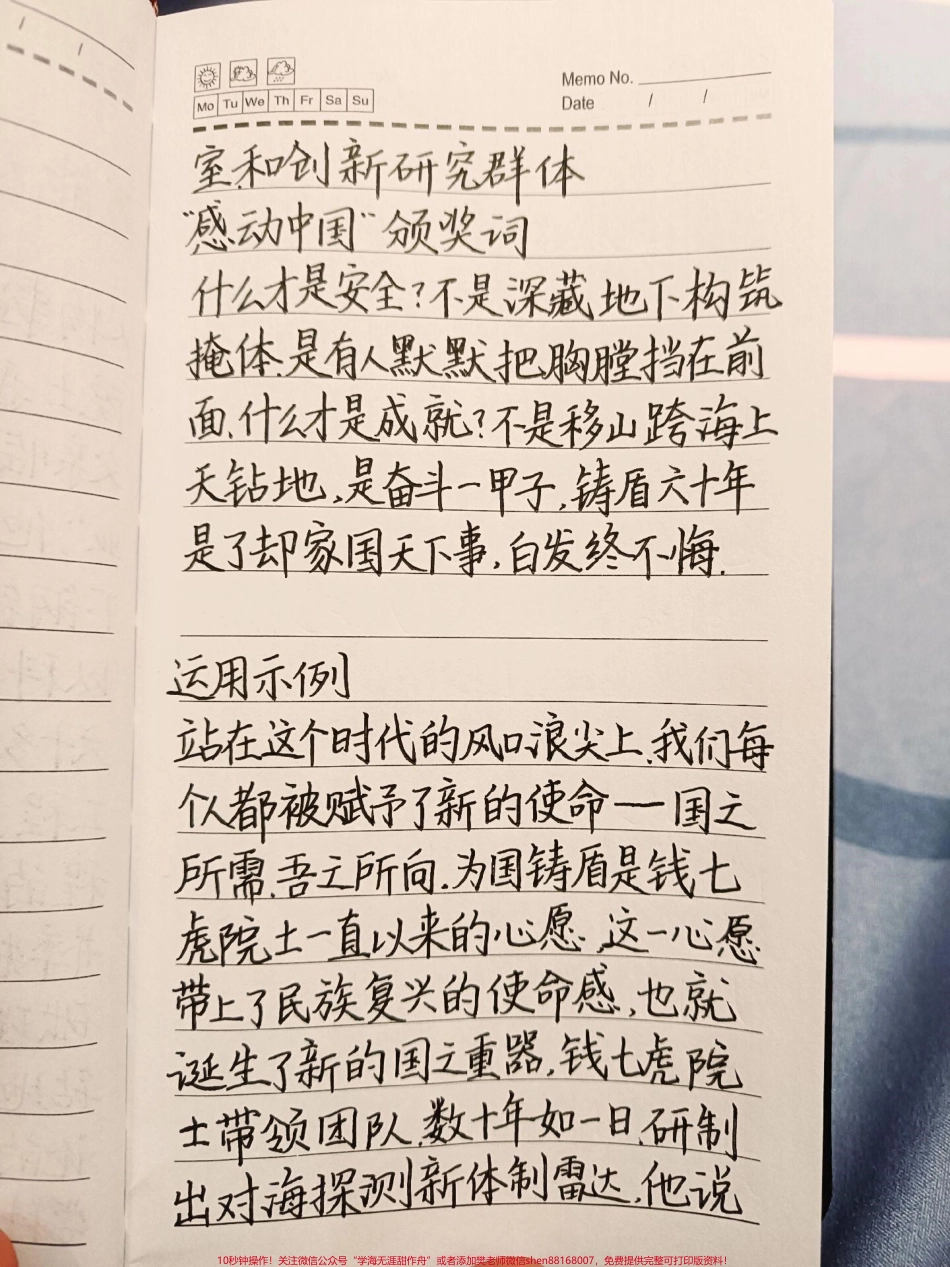 Memo No.
Mo Tu We Th Fr Sa Su
Date / /
室和创新研究群体
"感动中国"颁奖词
什么才是安全?不是深藏地下构筑
掩体.是有人默默把胸膛挡在前
面.什么才是成就?不是移山跨海上
天钻地,是奋斗一甲子,铸盾六十年
是了却家国天下事,白发终不悔.
运用示例
站在这个时代的风口浪尖上.我们每
个人都被赋予了新的使命——国之
所需.吾之所向.为国铸盾是钱七
虎院士一直以来的心愿.这一心愿
带上了民族复兴的使命感,也就
诞生了新的国之重器,钱七虎院
士带领团队.数十年如一日.研制
出对海探测新体制雷达.他说
10秒钟操作!关注微信公众号“学海无涯甜作舟”或者添加樊老师微信shen88168007,免费提供完整可打印版资料!